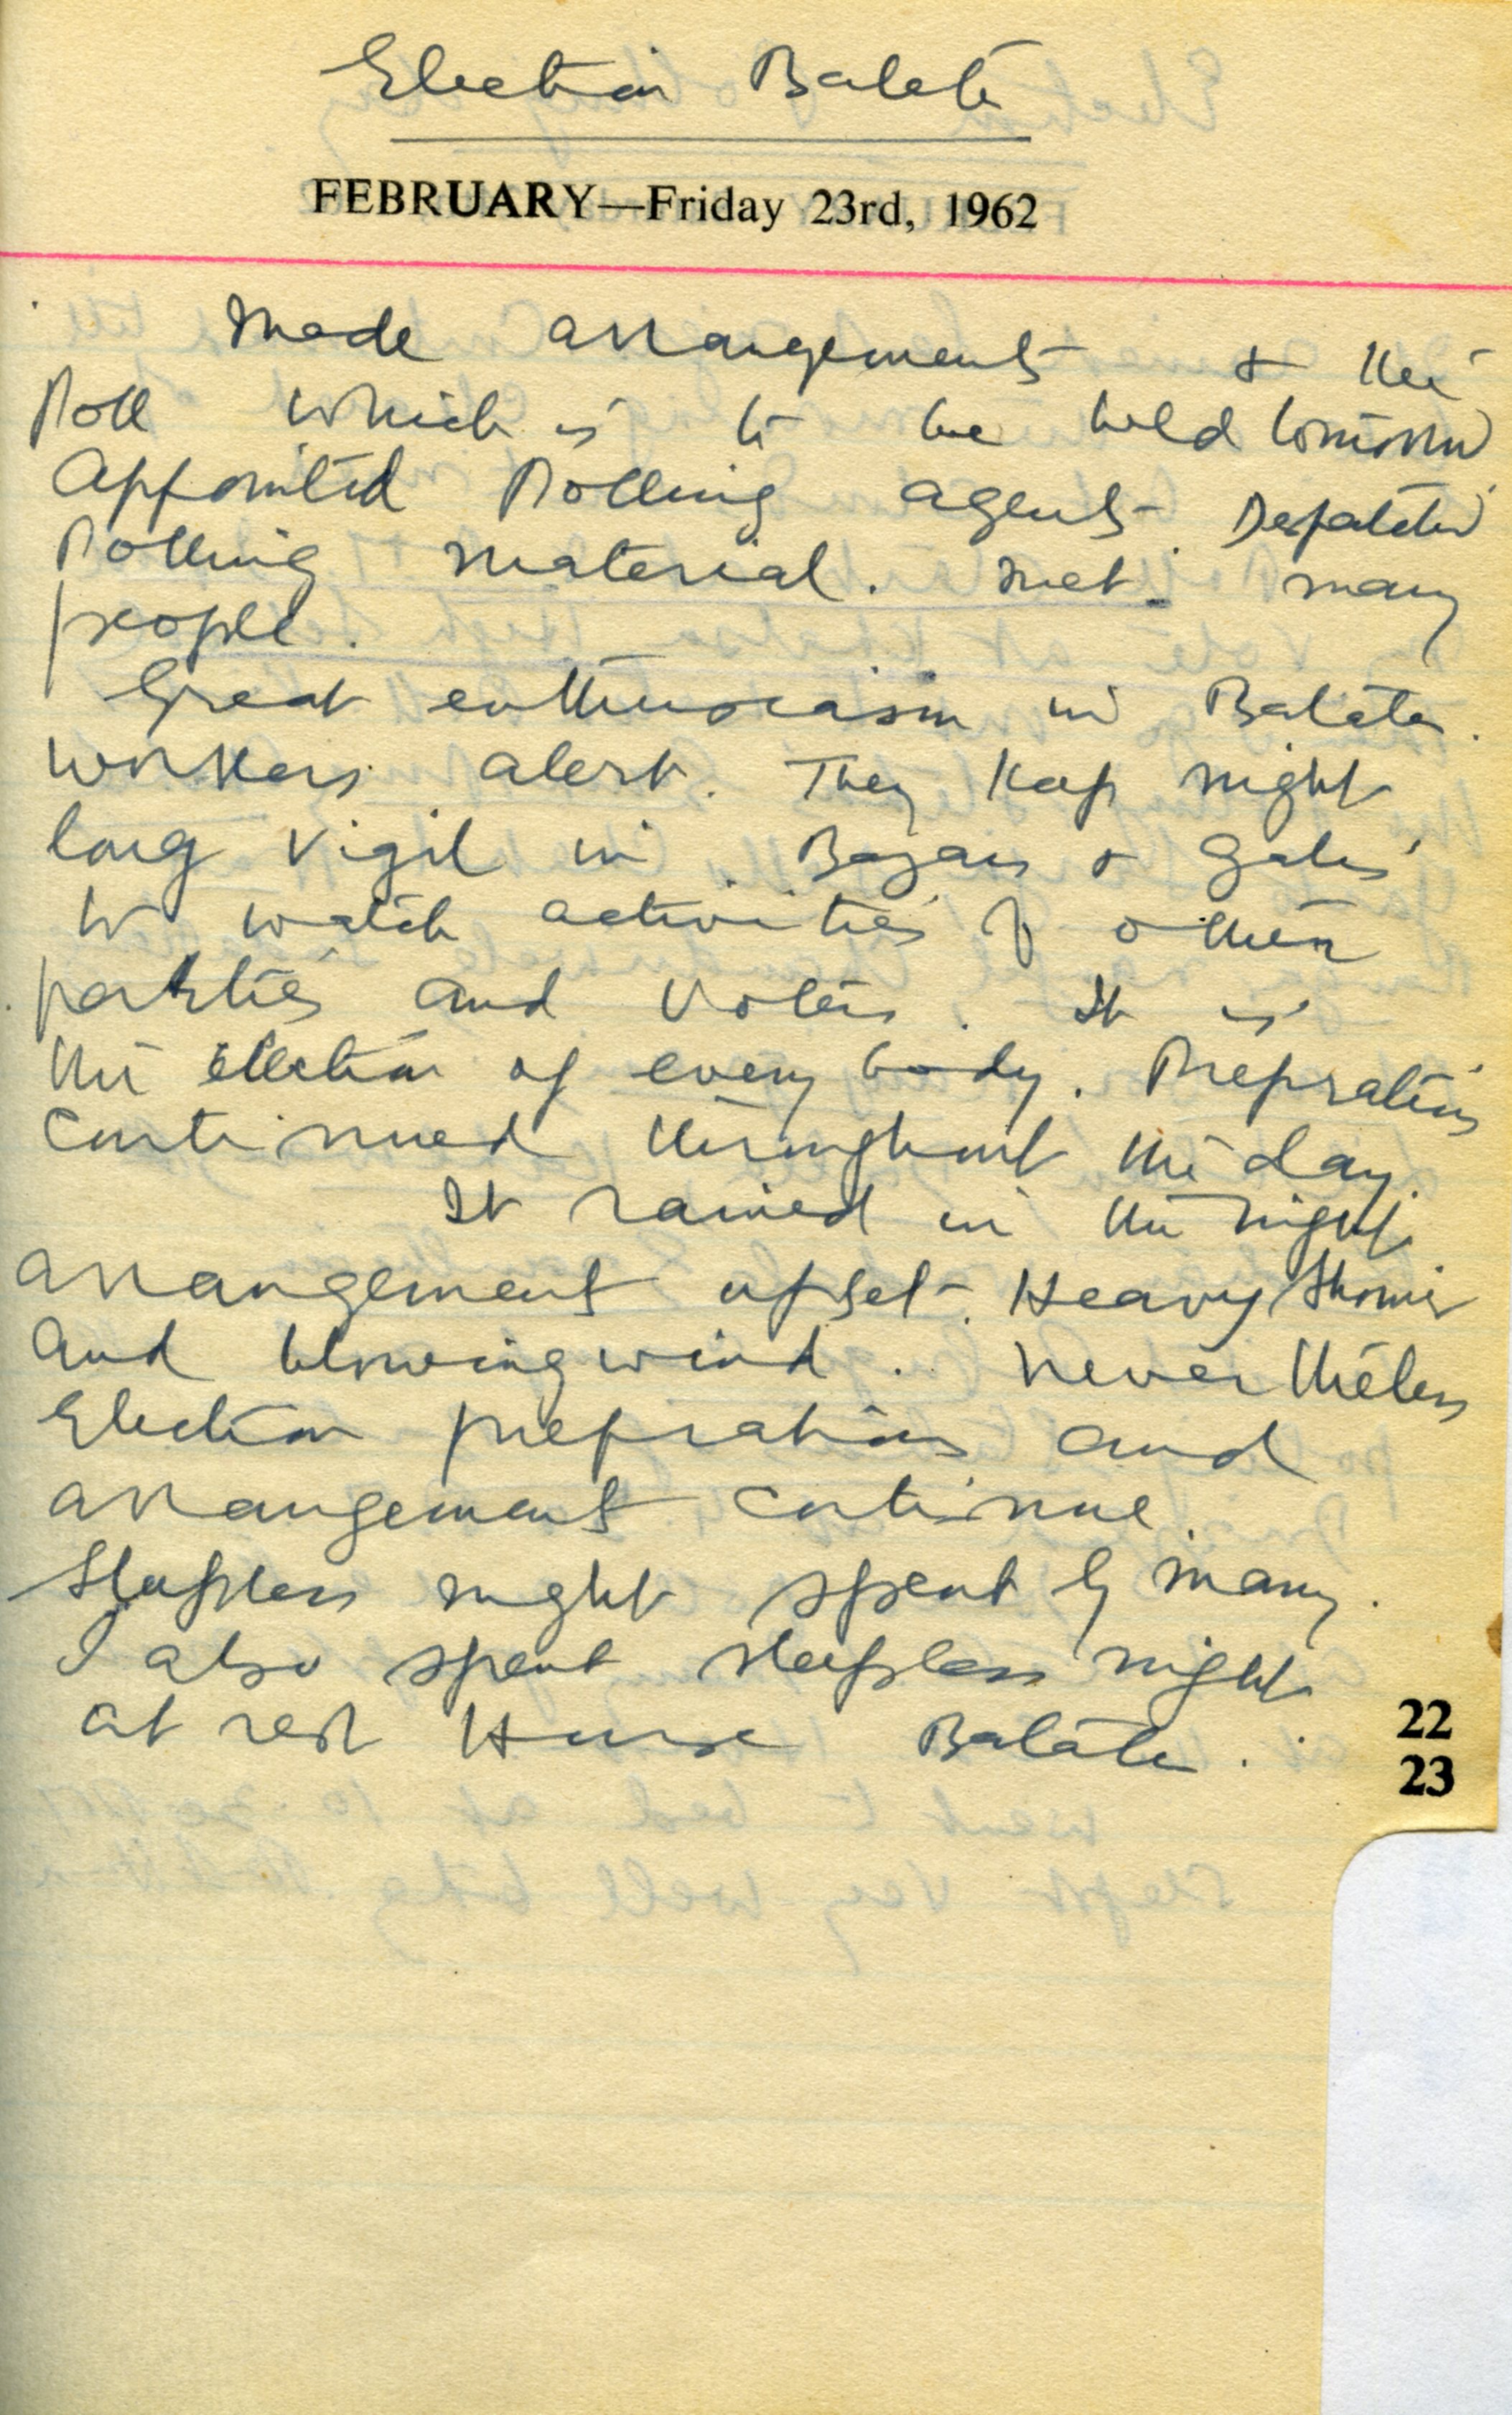 Election Batala
FEBRUARY—Friday 23rd, 1962
Made arrangements & the
Poll which is to be held tomorrow
Appointed Polling agents. Despatched
Polling material. Met many
people.
Great enthusiasm in Batala.
workers alert. They keep night
long vigil in Bazars & galis
to watch activities of other
parties and voters. It is
the election of every body. Prepration
continued throughout the day.
It rained in the night.
arrangement upset. Heavy showers
and blowing wind. Never theless
Election preprations and
arrangement continue.
Sleepless night spent by many.
I also spent sleepless night
at rest House Batala.
22
23